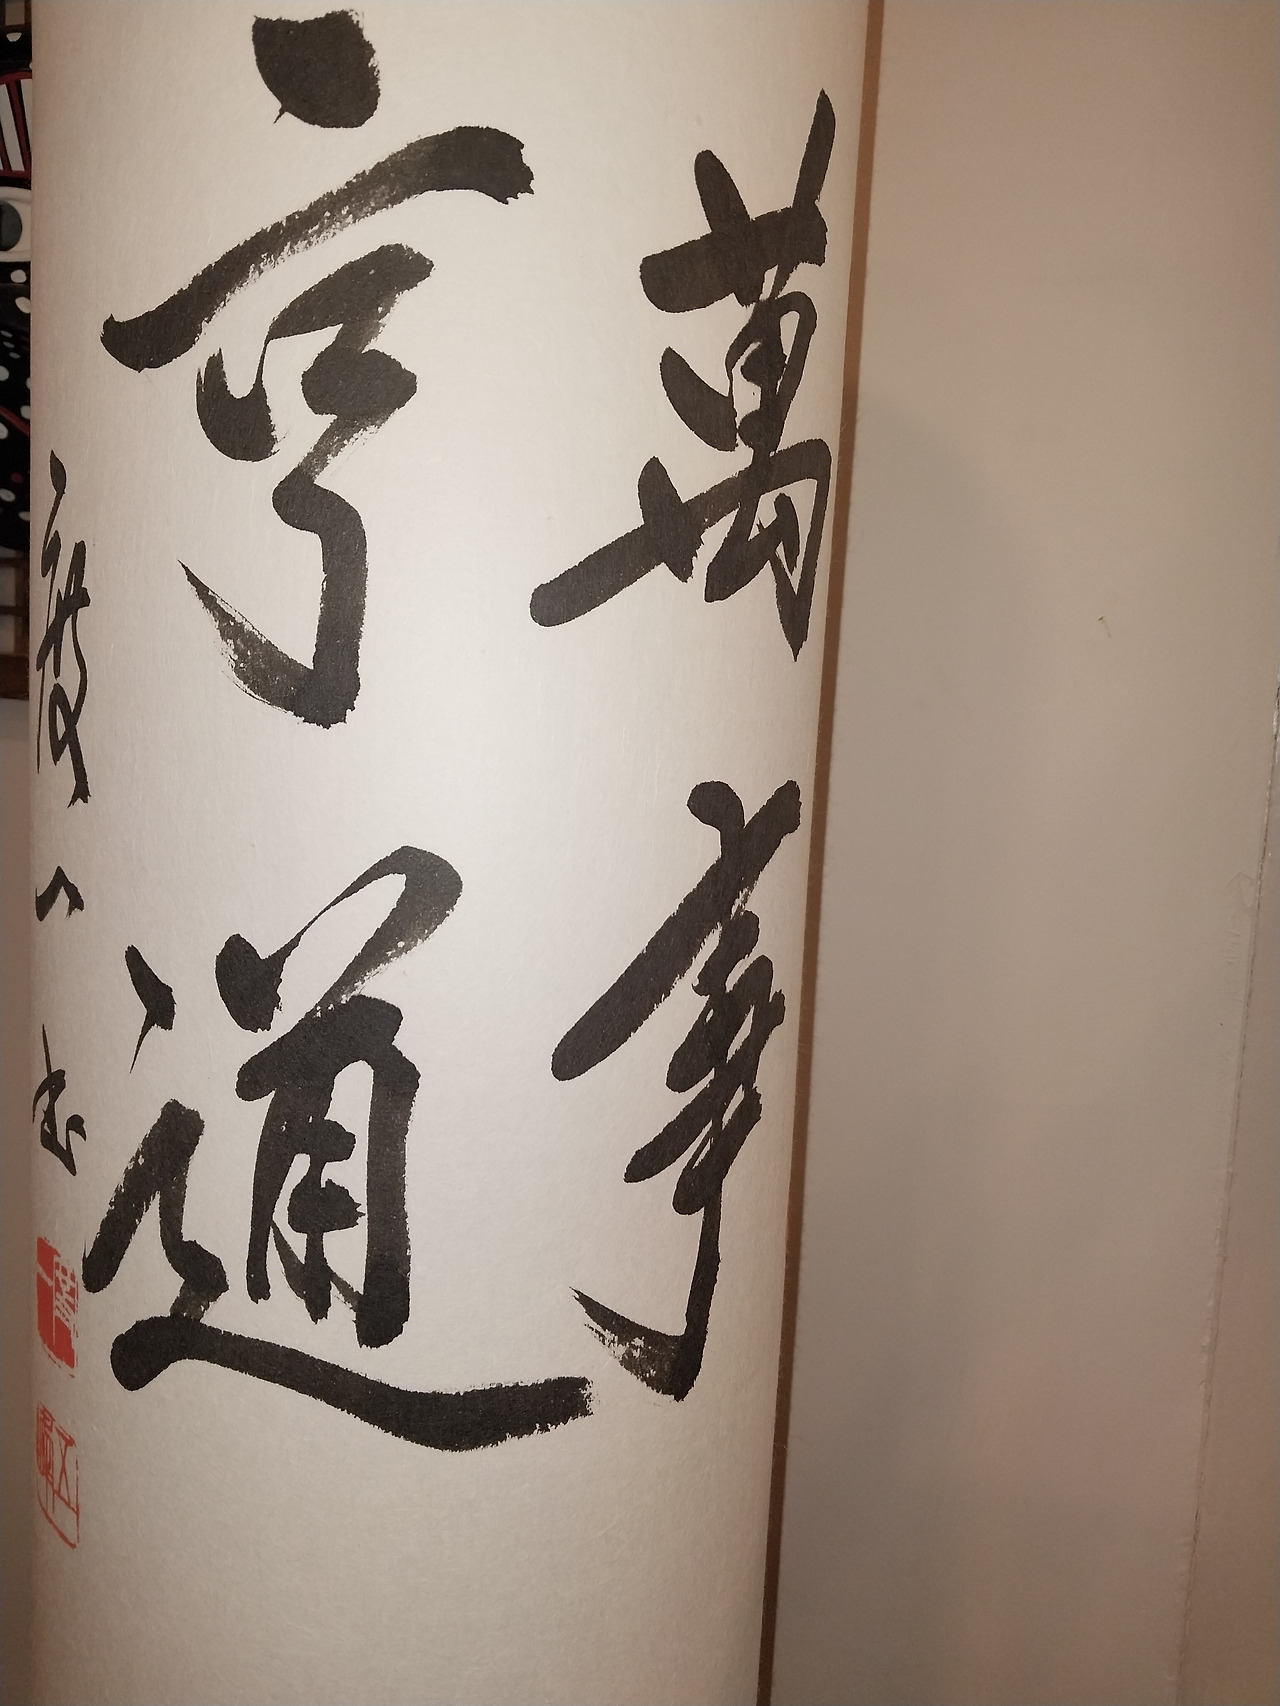 萬事
亨通
書